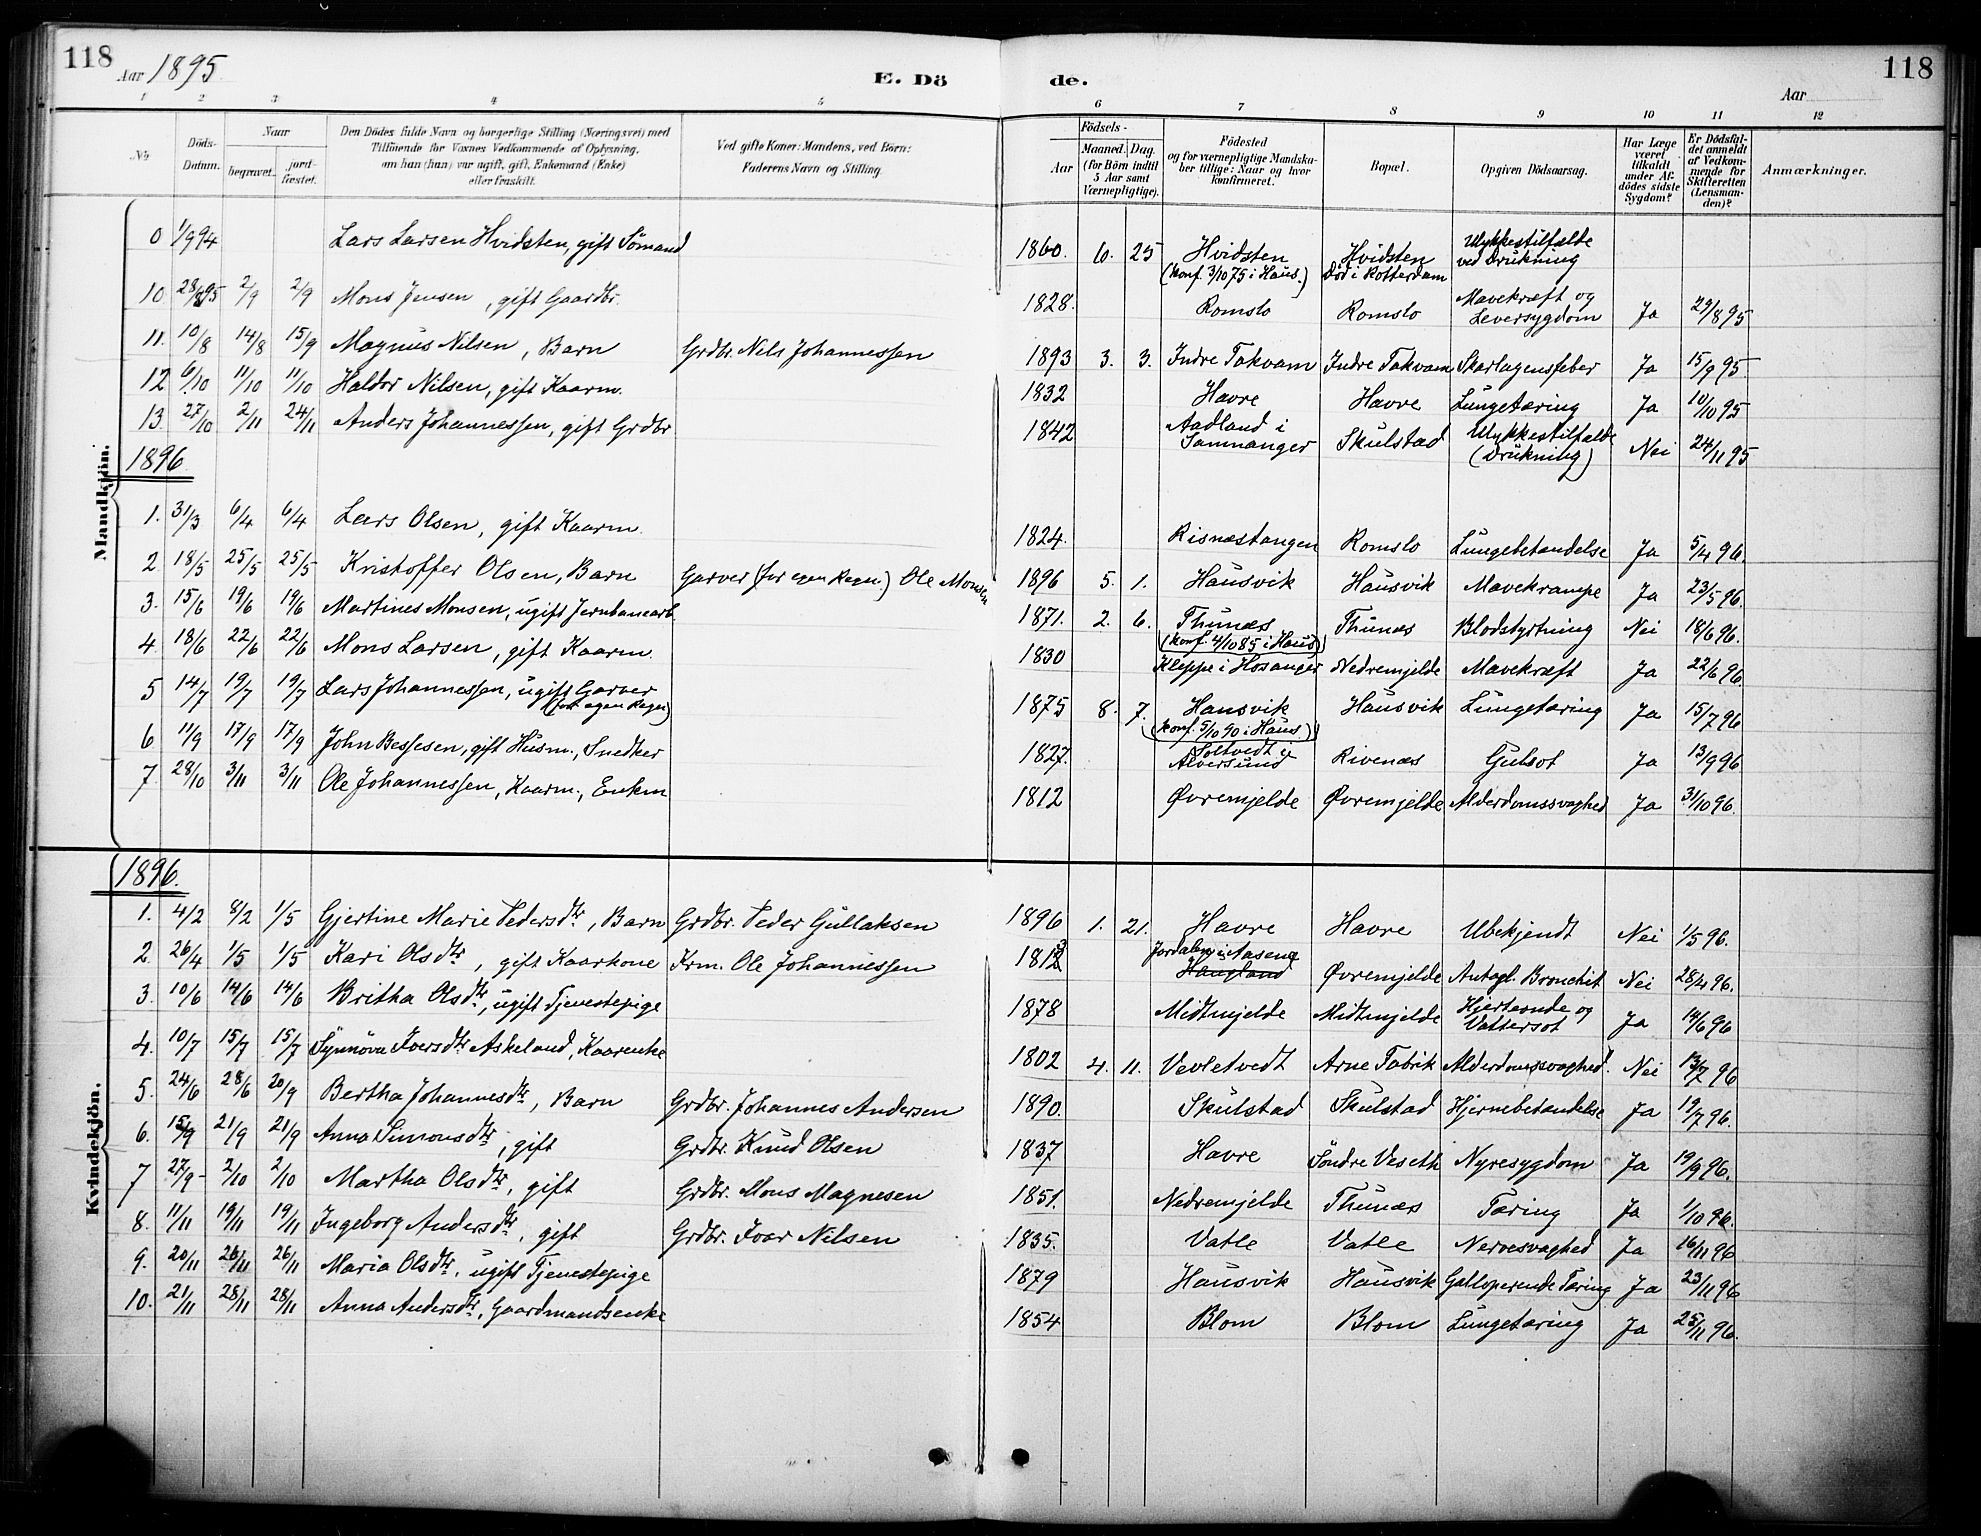 118 Aar 1895 E. Dö de. Aar 118
1 2 3 4 5 6 7 8 9 10 11 12
No. Döds-Datum. Naar begravet. jordfæstet. Den Dödes fulde Navn og borgerlige Stilling (Næringsvei) med Tilföiende for Voxnes Vedkommende af Oplysning, om han (hun) var ugift, gift, Enkemand (Enke) eller fraskilt. Ved gifte Koner: Mandens, ved Börn: Faderens Navn og Stilling. Födsels- Aar Maaned. Dag. (for Börn indtil 5 Aar samt Værnepligtige). Födested og for værnepligtige Mandskaber tillige: Naar og hvor konfirmeret. Bopæl. Opgiven Dödsaarsag. Har Læge været tilkaldt under Afdödes sidste Sygdom? Er Dödsfaldet anmeldt af Vedkommende for Skifteretten (Lensmanden)? Anmærkninger.
Mandkjön.
0 1/9 94 Lars Larsen Hvidsten, gift Sömand 1860. 6. 25 Hvidsten (konf. 3/10 75 i Haus.) Hvidsten Död i Rotterdam Ulykkestilfælde ved Drukning
10 28/8 95 2/9 2/9 Mons Jensen, gift Gaardbr. 1828. Romslo Romslo Mavekræft og Leversygdom Ja 29/8 95
11. 10/8 14/8 15/9 Magnus Nilsen, Barn Grdbr. Nils Johannessen 1893 3. 3. Indre Takvam Indre Takvam Skarlagensfeber Ja 15/9 95.
12 6/10 11/10 11/10 Haldor Nilsen, gift Kaarm. 1832 Havre Havre Lungetæring Ja 10/10 95
13. 27/10 2/11 24/11 Anders Johannessen, gift Grdbr. 1842 Aadland i Samnanger Skulstad Ulykkestilfælde (Drukning) Nei 24/11 95
1896.
1. 31/3 6/4 6/4 Lars Olsen, gift Kaarm. 1824. Risnæstangen Romslo Lungebetændelse Ja 5/4 96.
2. 18/5 25/5 25/5 Kristoffer Olsen, Barn Garver (for egen Regn.) Ole Monsen 1896 5. 1. Hausvik Hausvik Mavekrampe Ja 23/5 96.
3. 15/6 19/6 19/6 Martines Monsen, ugift Jernbanearb. 1871. 2. 6. Thunæs (konf. 4/10 85 i Haus) Thunæs Blodstyrtning Nei 18/6 96.
4. 18/6 22/6 22/6 Mons Larsen, gift Kaarm. 1830 Kleppe i Hosanger Nedremjelde Mavekræft Ja 22/6 96.
5 14/7 19/7 19/7 Lars Johannessen, ugift Garver (for egen Regn) 1875 8. 7. Hausvik (konf. 5/10 90 i Haus) Hausvik Lungetæring Ja 15/7 96
6 11/9 17/9 17/9 John Bessesen, gift Husm., Snedker 1827. Soltvedt i Alversund Rivenæs Gulsot Ja 13/9 96
7. 28/10 3/11 3/11 Ole Johannessen, Kaarm., Enkm 1812 Övremjelde Övremjelde Alderdomssvaghed Ja 31/10 96.
Kvindekjön.
1896.
1. 4/2 8/2 1/5 Gjertine Marie Pedersdtr, Barn Grdbr. Peder Gullaksen 1896 1. 21. Havre Havre Ubekjendt Nei 1/5 96.
2. 26/4 1/5 1/5 Kari Olsdtr, gift Kaarkone Krm. Ole Johannessen 1813 Jordalen i Aasene Haugland Övremjelde Antagl. Bronchit Nei 28/4 96.
3. 10/6 14/6 14/6 Britha Olsdtr, ugift Tjenestepige 1878 Midtmjelde Midtmjelde Hjerteonde og Vattersot Ja 14/6 96
4. 10/7 15/7 15/7 Synnöva Iversdtr Askeland, Kaarenke 1802 4. 11. Vevletvedt Arne Fabrik Alderdomssvaghed Nei 13/7 96
5. 24/6 28/6 20/9 Bertha Johannesdtr, Barn Grdbr. Johannes Andersen 1890. Skulstad Skulstad Hjernebetændelse Ja 19/7 96.
6. 15/9 21/9 21/9 Anna Simonsdtr, gift Grdbr. Knud Olsen 1837 Havre Söndre Veseth Nyresygdom Ja 19/9 96.
7 27/9 2/10 2/10 Martha Olsdtr, gift Grdbr. Mons Magnesen 1851. Nedremjelde Thunæs Tæring Ja 1/10 96.
8. 11/11 19/11 19/11 Ingeborg Andersdtr, gift Grdbr. Ivar Nilsen 1835. Vatle Vatle Nervesvaghed Ja 16/11 96
9. 20/11 26/11 26/11 Maria Olsdtr, ugift Tjenestepige 1879 Hausvik Hausvik Galloperende Tæring Ja 23/11 96
10. 21/11 28/11 28/11 Anna Andersdtr, Gaardmandsenke 1854 Blom Blom Lungetæring Ja 25/11 96.